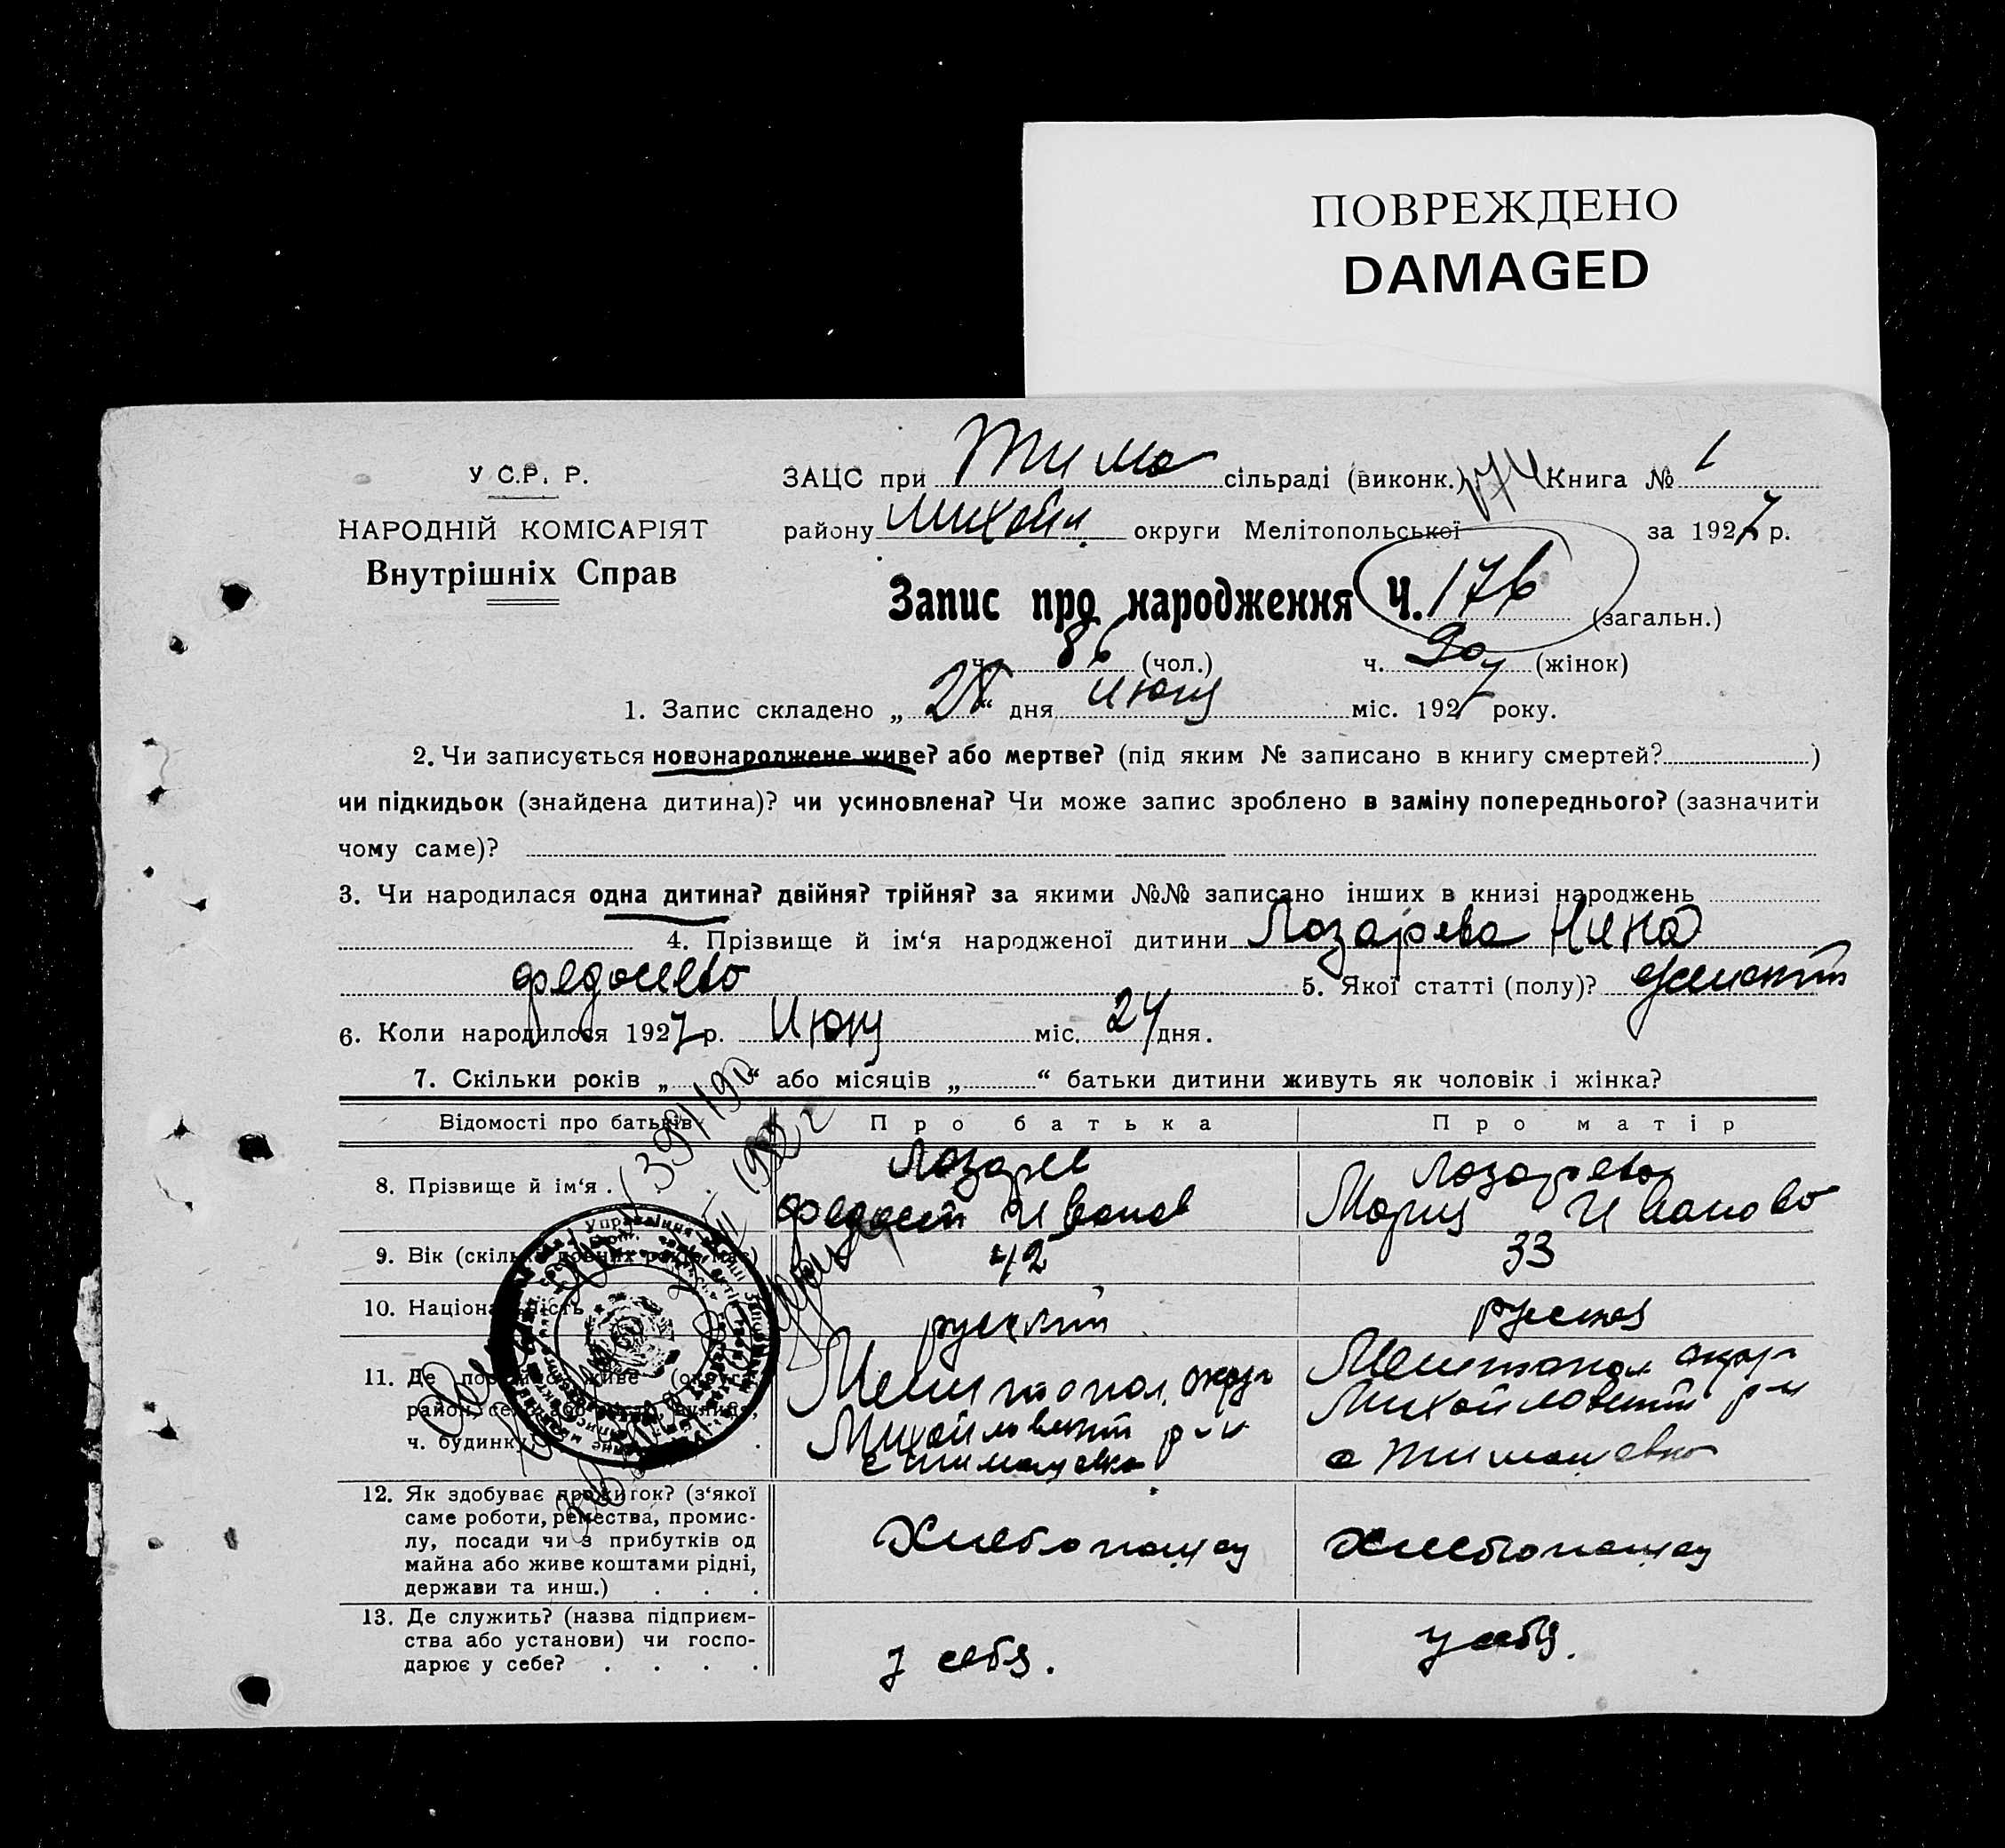 ПОВРЕЖДЕНО
DAMAGED
У С.Р. Р.
НАРОДНІЙ КОМІСАРІЯТ
Внутрішніх Справ
ЗАЦС при Тима сільраді (виконк.) 174 Книга № 1
району Михайл. округи Мелітопольської за 1927 р.
Запис про народження Ч. 176 (загальн.)
ч. 86 (чол.) ч. 90 (жінок)
1. Запис складено „28“ дня Июня міс. 1927 року.
2. Чи записується новонароджене живе? або мертве? (під яким № записано в книгу смертей? )
чи підкидьок (знайдена дитина)? чи усиновлена? Чи може запис зроблено в заміну попереднього? (зазначити
чому саме)?
3. Чи народилася одна дитина? двійня? трійня? за якими №№ записано інших в книзі народжень
4. Прізвище й ім‘я народженої дитини Лазарева Нина
Федосеева 5. Якої статті (полу)? женский
6. Коли народилося 1927 р. Июня міс. 24 дня.
7. Скільки років „ “ або місяців „ “ батьки дитини живуть як чоловік і жінка?
Відомості про батьків: Про батька Про матір
8. Прізвище й ім‘я . . . Лазарев Федосей Иванов Лазарева Мария Иванова
9. Вік (скільки повних років має) 42 33
10. Національність русский русская
11. Де постійно живе (округа,
район, село або місто, вулиця,
ч. будинку)
Мелитопол. округ
Михайловский р-н
с Тимашевка
Мелитопол округ
Михайловский р-н
с Тимашевка
12. Як здобуває прожиток? (з‘якої
саме роботи, ремества, промис-
лу, посади чи з прибутків од
майна або живе коштами рідні,
держави та инш.) . . .
Хлебопашец Хлебопашец
13. Де служить? (назва підприєм-
ства або установи) чи госпо-
дарює у себе? . . . .
у себя. у себя.